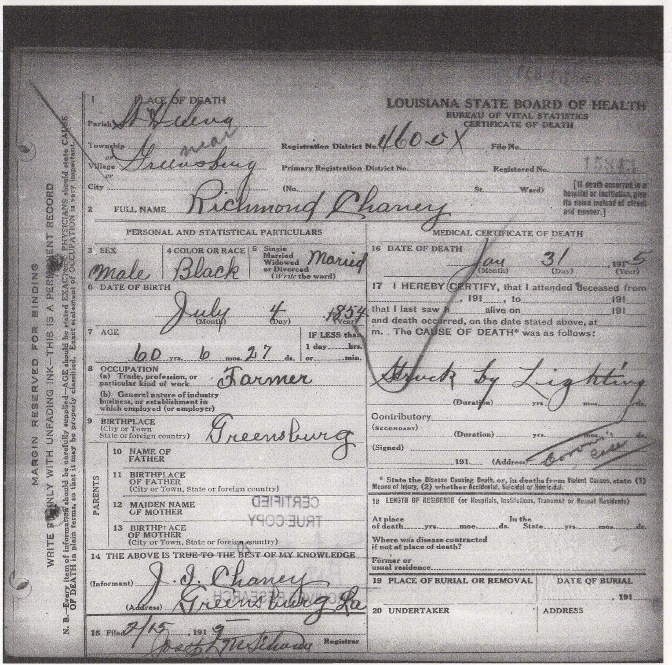 MARGIN RESERVED FOR BINDING
WRITE PLAINLY WITH UNFADING INK—THIS IS A PERMANENT RECORD
N. B.—Every item of information should be carefully supplied—AGE should be stated EXACTLY. PHYSICIANS should state CAUSE
OF DEATH in plain terms, so that it may be properly classified. Exact statement of OCCUPATION is very important.
1 PLACE OF DEATH
Parish St Helena
Township near
or
Village Greensburg
or
City
LOUISIANA STATE BOARD OF HEALTH
BUREAU OF VITAL STATISTICS
CERTIFICATE OF DEATH
Registration District No. 460-5X File No.
Primary Registration District No. Registered No.
(No. St. Ward)
[If death occurred in a
hospital or institution, give
its name instead of street
and number.]
2 FULL NAME Richmond Chaney
PERSONAL AND STATISTICAL PARTICULARS
3 SEX
Male
4 COLOR OR RACE
Black
5 Single
Married
Widowed
or Divorced
(Write the word)
Maried
6 DATE OF BIRTH
July 4 1854
(Month) (Day) (Year)
7 AGE
60 yrs. 6 mos. 27 ds.
IF LESS than
1 day hrs.
or min.
8 OCCUPATION
(a) Trade, profession, or
particular kind of work Farmer
(b) General nature of industry
business, or establishment in
which employed (or employer)
9 BIRTHPLACE
(City or Town
State or foreign country) Greensburg
PARENTS
10 NAME OF
FATHER
11 BIRTHPLACE
OF FATHER
(City or Town, State or foreign country)
12 MAIDEN NAME
OF MOTHER
13 BIRTHPLACE
OF MOTHER
(City or Town, State or foreign country)
CERTIFIED
TRUE COPY
14 THE ABOVE IS TRUE TO THE BEST OF MY KNOWLEDGE
(Informant) J. I. Chaney
(Address) Greensburg La
15 Filed 2/15 191
Registrar
MEDICAL CERTIFICATE OF DEATH
16 DATE OF DEATH
Jan 31 1915
(Month) (Day) (Year)
17 I HEREBY CERTIFY, that I attended deceased from
, 191 , to 191
that I last saw h alive on 191
and death occurred, on the date stated above, at
m. The CAUSE OF DEATH* was as follows:
Struck by Lighting
(Duration) yrs. mos. ds.
Contributory
(SECONDARY)
(Duration) yrs. mos. ds.
(Signed)
191 (Address)
* State the Disease Causing Death, or, in deaths from Violent Causes, state (1)
Means of Injury, (2) whether Accidental, Suicidal or Homicidal.
18 LENGTH OF RESIDENCE (or Hospitals, Institutions, Transient or Recent Residents)
At place In the
of death yrs. mos. ds. State yrs. mos. ds.
Where was disease contracted
if not at place of death?
Former or
usual residence
19 PLACE OF BURIAL OR REMOVAL DATE OF BURIAL
191
20 UNDERTAKER ADDRESS